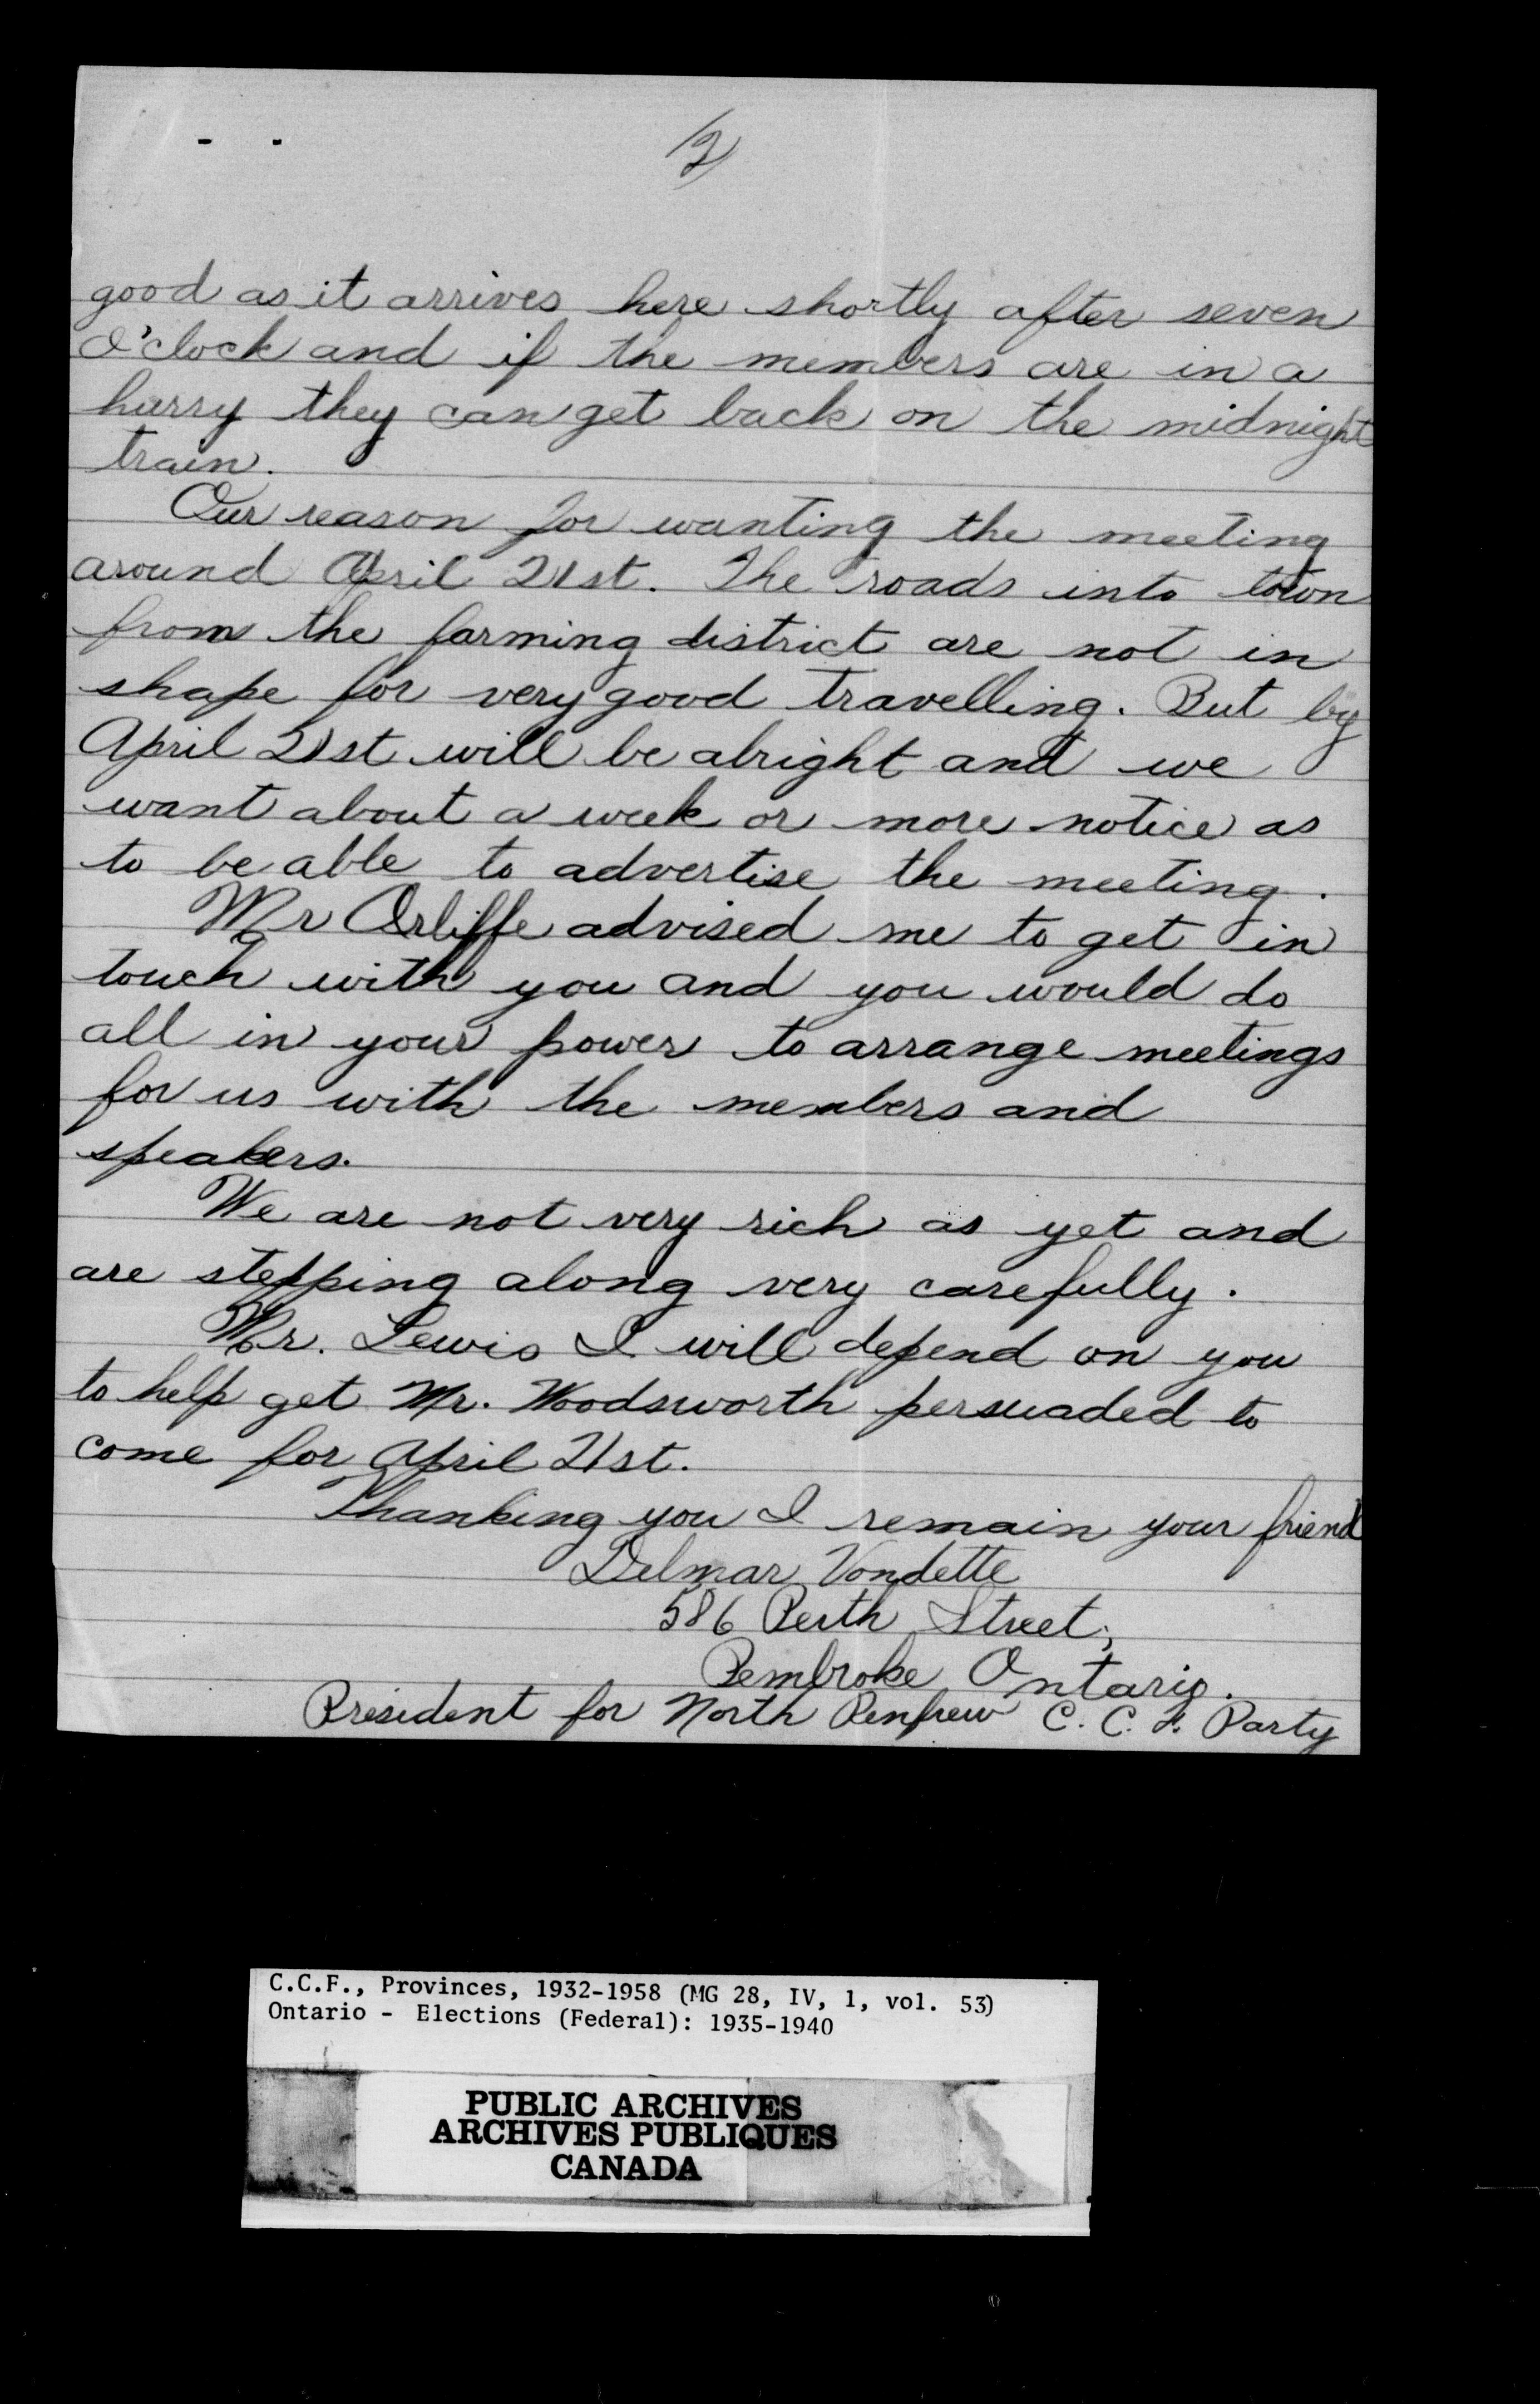 2
good as it arrives here shortly after seven
o'clock and if the members are in a
hurry they can get back on the midnight
train.
Our reason for wanting the meeting
around April 21st. The roads into town
from the farming district are not in
shape for very good travelling. But by
April 21st will be alright and we
want about a week or more notice as
to be able to advertise the meeting.
Mr Orliffe advised me to get in
touch with you and you would do
all in your power to arrange meetings
for us with the members and
speakers.
We are not very rich as yet and
are stepping along very carefully.
Mr. Lewis I will depend on you
to help get Mr. Woodsworth persuaded to
come for April 21st.
Thanking you I remain your friend
Delmar Vondette
586 Perth Street,
Pembroke Ontario.
President for North Renfrew C. C. F. Party
C.C.F., Provinces, 1932-1958 (MG 28, IV, 1, vol. 53)
Ontario - Elections (Federal): 1935-1940
PUBLIC ARCHIVES
ARCHIVES PUBLIQUES
CANADA